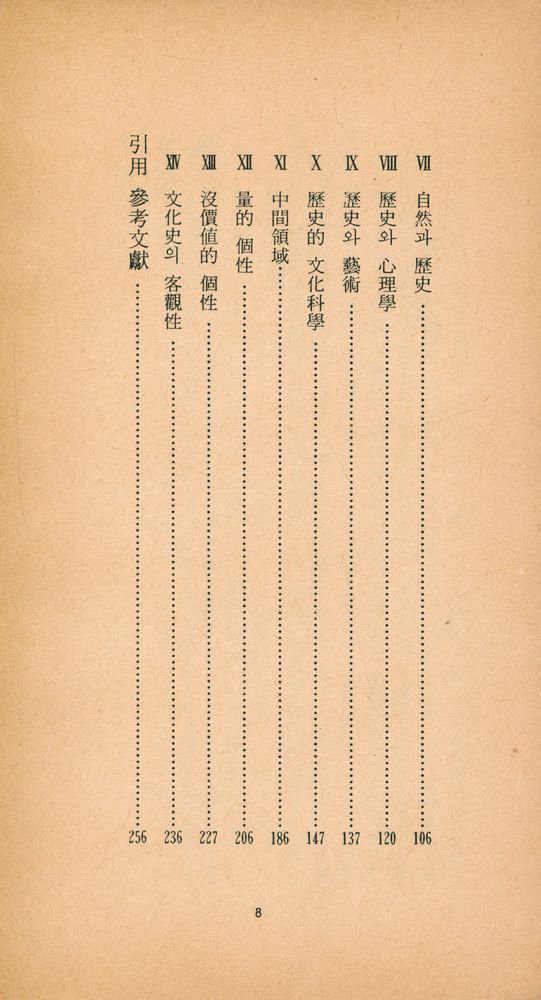 Ⅶ 自然과 歷史 106
Ⅷ 歷史와 心理學 120
Ⅸ 歷史와 藝術 137
Ⅹ 歷史的 文化科學 147
Ⅺ 中間領域 186
Ⅻ 量的 個性 206
XIII 沒價値的 個性 227
XIV 文化史의 客觀性 236
引用 參考文獻 256
8